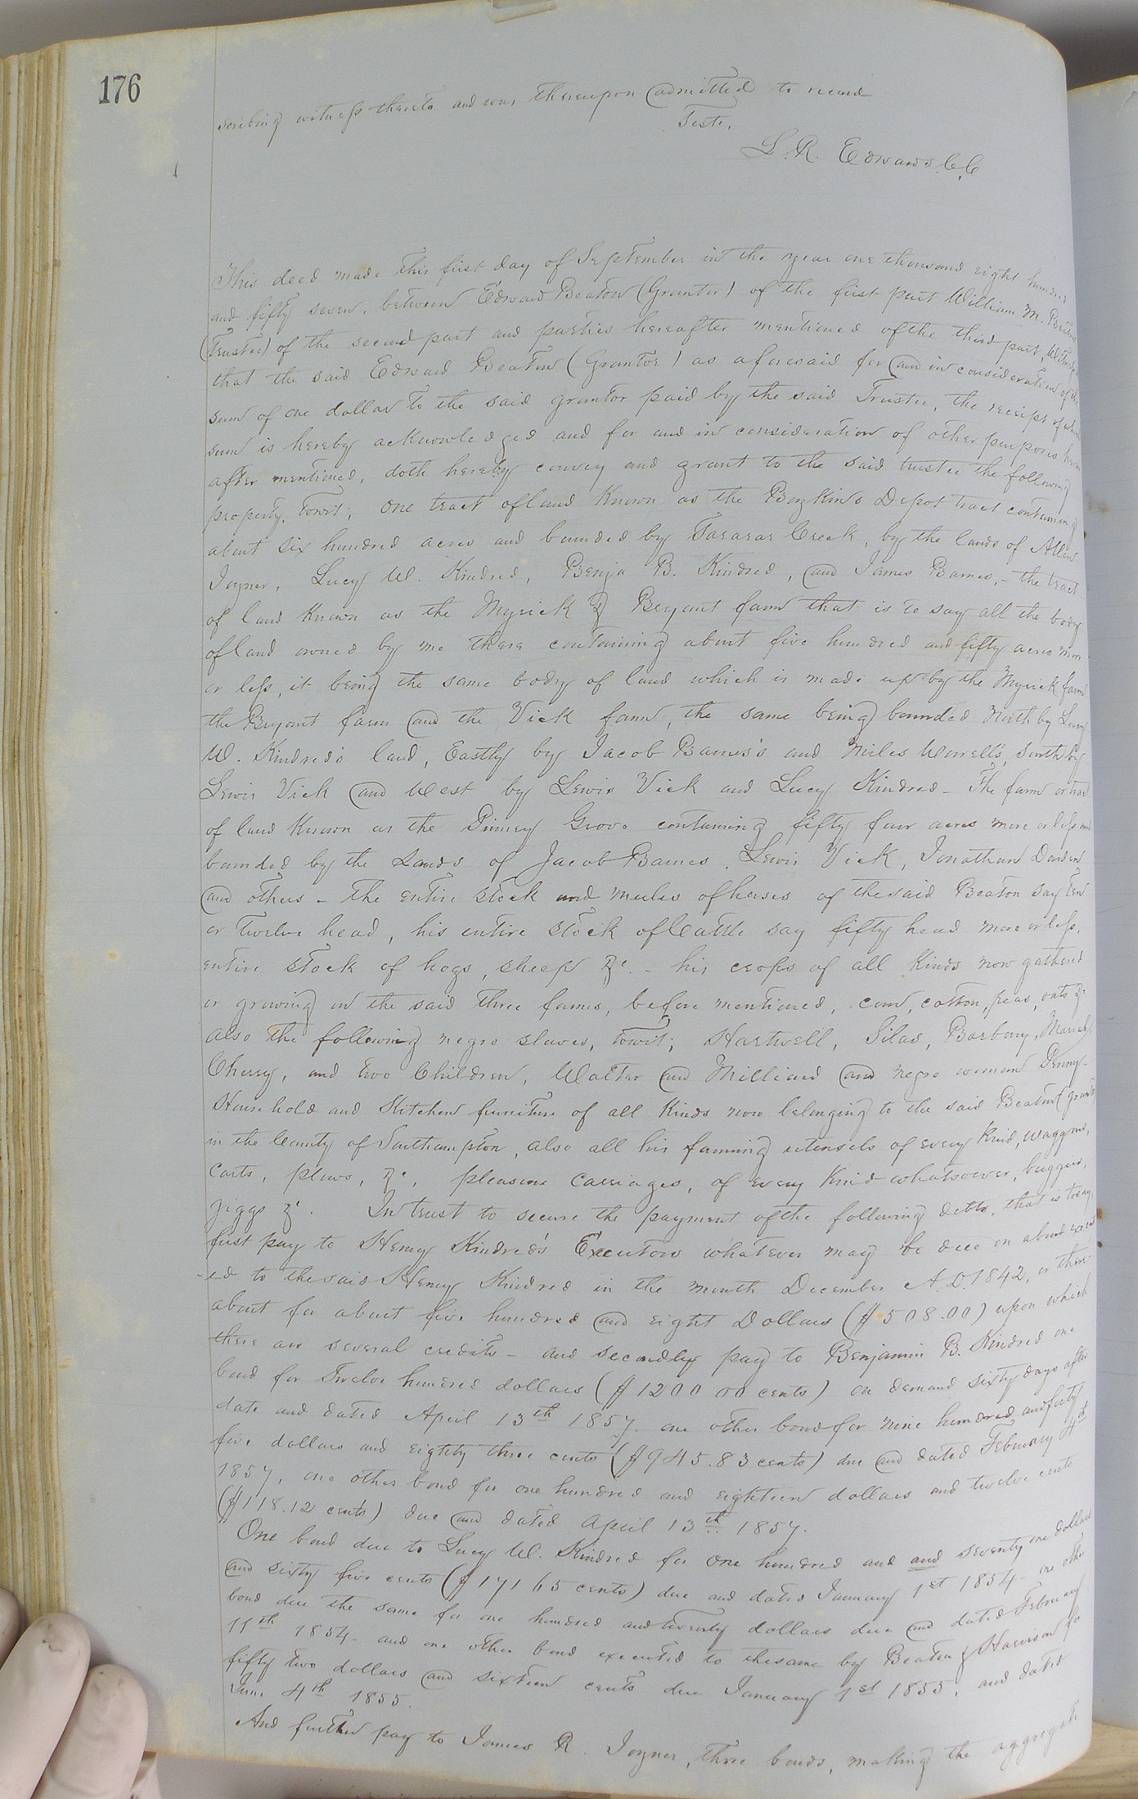 176
scribing witness thereto and was thereupon admitted to record
Teste,
L. R. Edwards C.C.
This deed made this first day of September in the year one thousand eight hundred
and fifty seven, between Edward Beaton (Grantor) of the first part William M.
(Trustee) of the second part and parties hereafter mentioned of the third part,
that the said Edward Beaton (Grantor) as aforesaid for and in consideration of the
sum of one dollar to the said grantor paid by the said Trustee, the receipt of which
sum is hereby acknowledged and for and in consideration of other purposes herein
after mentioned, doth hereby convey and grant to the said trustee the following
property, towit; One tract of land Known as the Boykins Depot tract containing
about six hundred acres and bounded by Tararar Creek, by the lands of
Joyner, Lucy W. Kindred, Benja B. Kindred, and James Barnes, - the tract
of land Known as the Myrick & Bryant farm that is to say all the body
of land owned by me there containing about five hundred and fifty acres more
or less, it being the same body of land which is made up by the Myrick farm
the Bryant farm and the Vick farm, the same being bounded North by Lucy
W. Kindred's land, Eastly by Jacob Barnes's and Miles Worrell's, South by
Lewis Vick and West by Lewis Vick and Lucy Kindred - The farm or tract
of land Known as the Grove containing fifty four acres more or less and
bounded by the Lands of Jacob Barnes, Lewis Vick, Jonathan Darden
and others - the entire stock and mules of horses of the said Beaton say ten
or twelve head, his entire stock of Cattle say fifty head more or less,
entire stock of hogs, sheep &c. - his crops of all Kinds now gathered
or growing on the said three farms, before mentioned, corn, cotton, peas, oats &c
also the following negro slaves, towit; Hartwell, Silas, Barbary,
Cherry, and two Children, Walter and Milliard and negro woman
Household and Kitchen furniture of all Kinds now belonging to the said Beaton
in the County of Southampton, also all his farming utensels of every Kind, waggons,
Carts, plows, &c, pleasure carriages, of every Kind whatsoever, buggies,
giggs &c. In trust to secure the payment of the following debts, that is to say,
first pay to Henry Kindred's Executors whatever may be due on a bond
ed to the said Henry Kindred in the month December A.D. 1842, or there
about for about five hundred and eight Dollars ($508.00) upon which
there are several credits - and secondly pay to Benjamin B. Kindred one
bond for Twelve hundred dollars ($1200 00 cents) on demand sixty days after
date and dated April 13th 1857. one other bond for nine hundred and forty
five dollars and eighty three cents ($945.83 cents) due and dated February 4th
1857, one other bond for one hundred and eighteen dollars and twelve cents
($118.12 cents) due and dated April 13th 1857.
One bond due to Lucy W. Kindred for one hundred and and seventy one dollars
and sixty five cents ($171 65 cents) due and dated January 1st 1854 - one other
bond due the same for one hundred and twenty dollars due and dated February
11th 1854 - and one other bond executed to the same by Beaton & Harrison for
fifty two dollars and sixteen cents due January 1st 1855, and dated
June 4th 1855.
And further pay to James R. Joyner, three bonds, making the aggregate